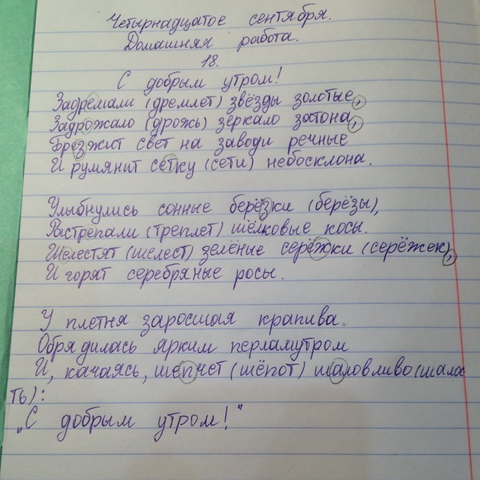 Четырнадцатое сентября.
Домашняя работа.
18.
С добрым утром!
Задремали (дремлет) звёзды золотые,
Задрожало (дрожь) зеркало затона,
Брезжит свет на заводи речные
И румянит сетку (сети) небосклона.
Улыбнулись сонные берёзки (берёзы),
Растрепали (треплет) шёлковые косы.
Шелестят (шелест) зелёные серёжки (серёжек),
И горят серебряные росы.
У плетня заросшая крапива
Обрядилась ярким перламутром
И, качаясь, шепчет (шёпот) шаловливо (шало
ть):
„С добрым утром!"